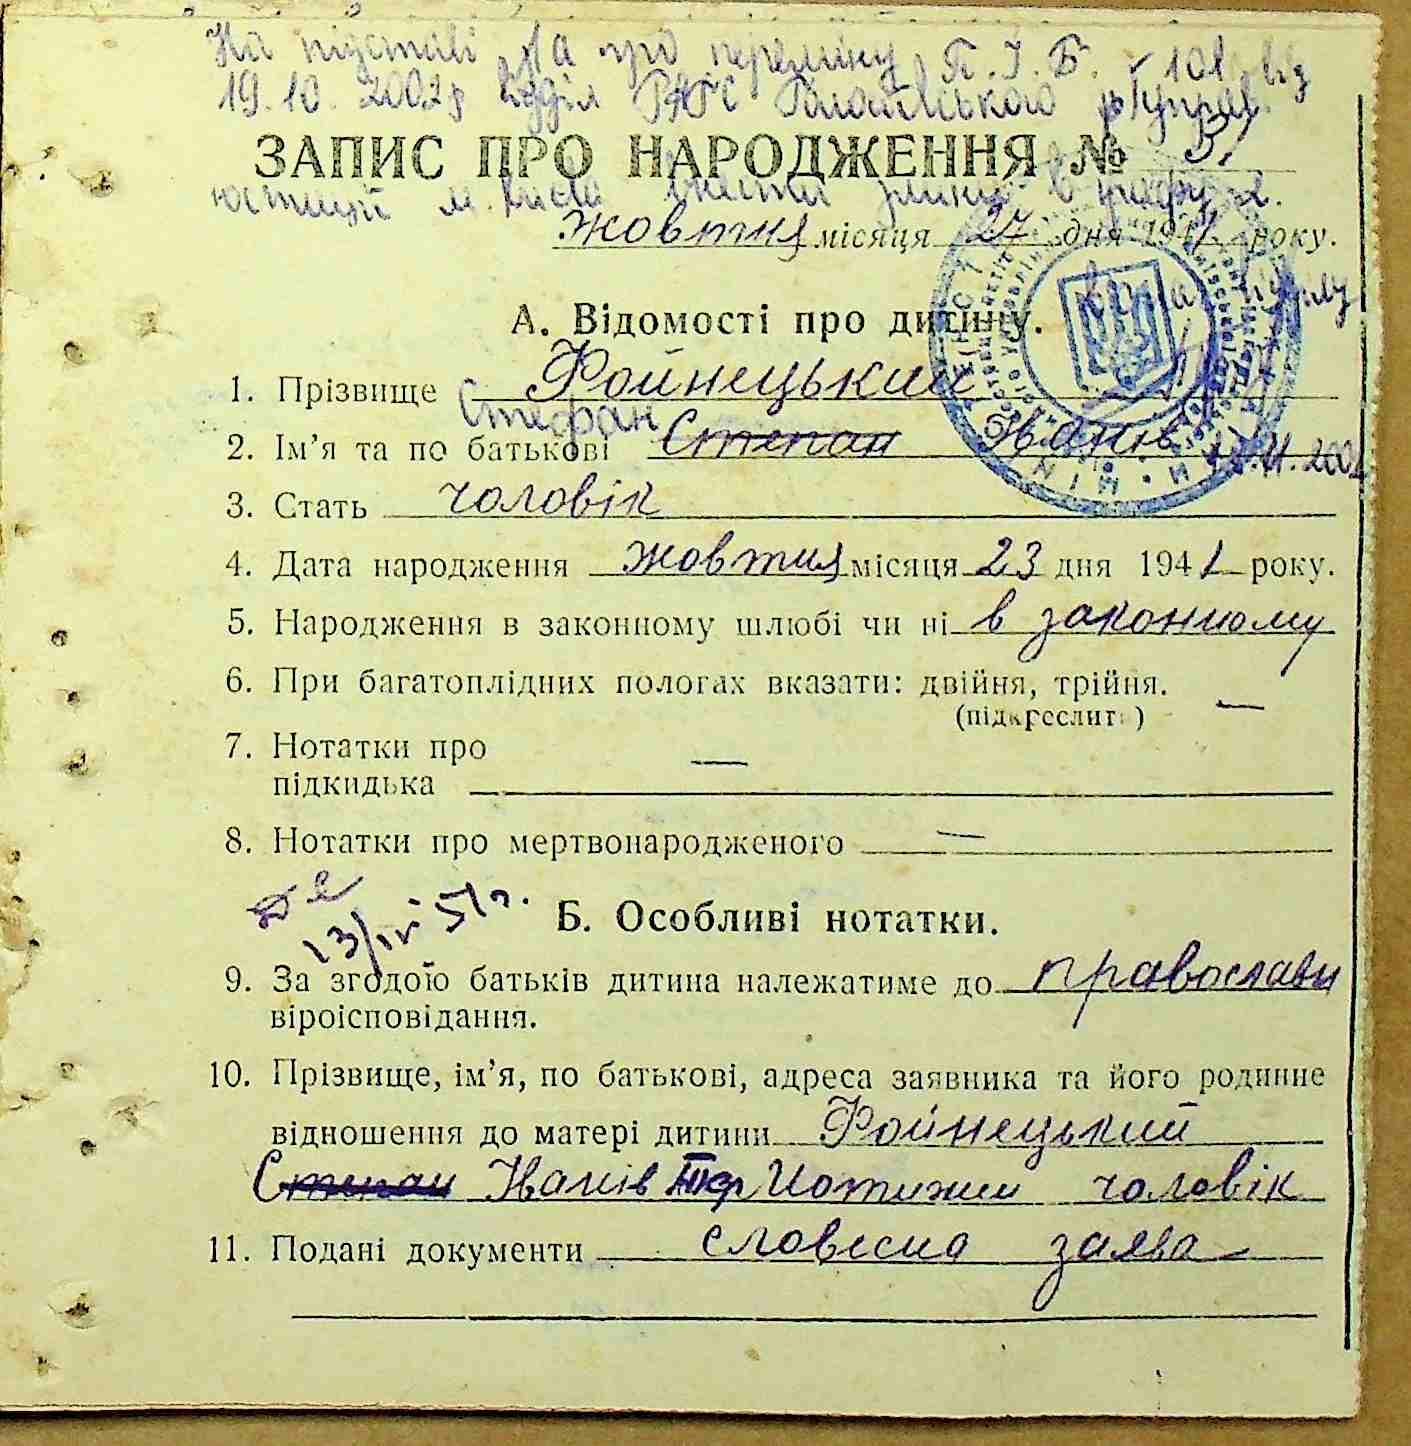 На підставі а/з про переміну П.І.Б. – 101 від
19.10.2002р відділ РАГС управ.
ЗАПИС ПРО НАРОДЖЕННЯ №
юстиції м. Києва внести зміни в графу 2.
жовтня місяця 27 дня 1941 року.
А. Відомості про дитину.
1. Прізвище Фойнецький
Стефан
2. Ім’я та по батькові Степан Іванів
3. Стать чоловік
4. Дата народження жовтня місяця 23 дня 1941 року.
5. Народження в законному шлюбі чи ні в законному
6. При багатоплідних пологах вказати: двійня, трійня. —
(підкреслити)
7. Нотатки про —
підкидька
8. Нотатки про мертвонародженого —
13/IV 51 г.
Б. Особливі нотатки.
9. За згодою батьків дитина належатиме до православн
віроісповідання.
10. Прізвище, ім’я, по батькові, адреса заявника та його родинне
відношення до матері дитини Фойнецький
Степан Іванів чоловік
11. Подані документи словесна заява